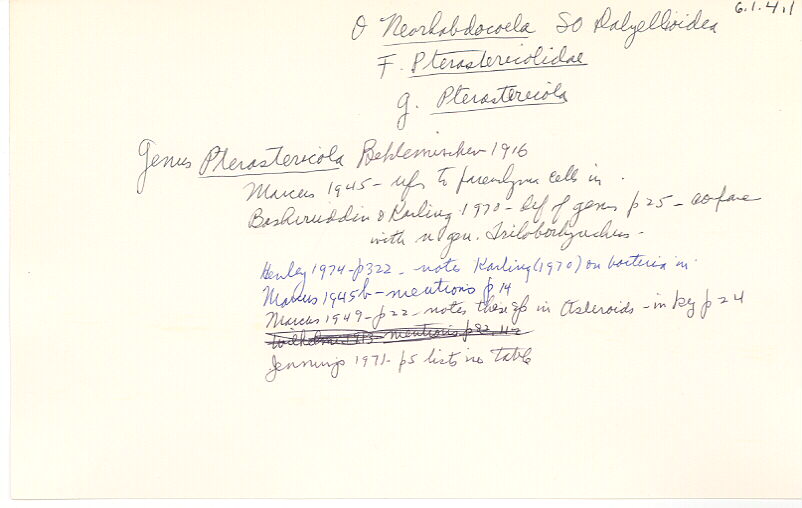 6.1.4.1
O Neorhabdocoela SO Dalyellioidea
F. Pterastericolidae
g. Pterastericola
Genus Pterastericola Beklemischev 1916
Marcus 1945 - refs to parenchyma cells in .
Bashiruddin & Karling 1970 - def of genus p 25 - compare
with n gen. Trilobovhynchus -
Henley 1974 - p322 - notes Karling (1970) on bacteria in
Marcus 1945b - mentions p 14
Marcus 1949 - p 22 - notes these gp in Asteroids - in key p 24
Wilhelmi 1913 - mentions p 82, 112
Jennings 1971 - p5 lists in table